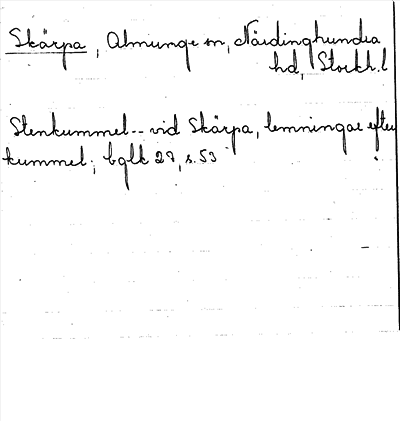 Skärpa, Almunge sn, Närdinghundra
hd, Stockh.l
Stenkummel -- vid Skärpa, lemningar efter
kummel; bglk 27, s. 53